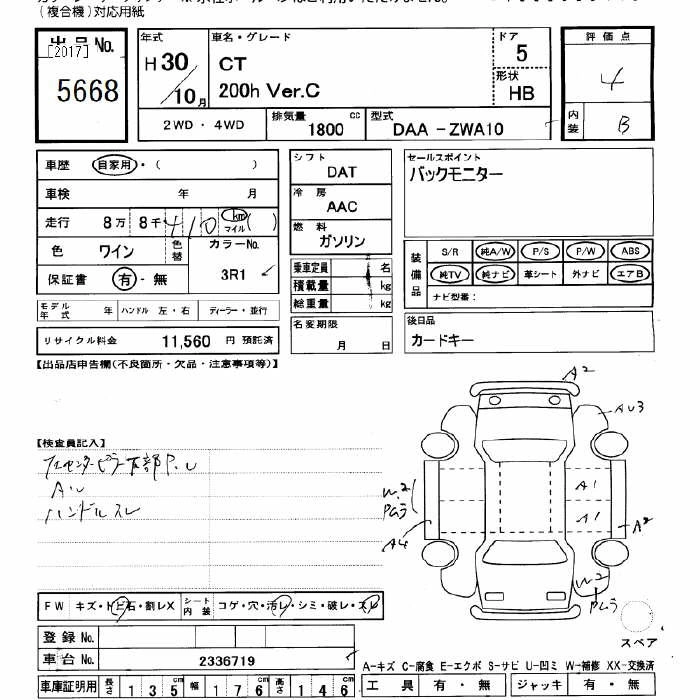 (複合機)対応用紙
出品No.
[2017]
5668
年式
H 30 / 10 月
車名・グレード
CT
200h Ver.C
ドア
5
形状
HB
2WD ・ 4WD
排気量
1800 cc
型式
DAA -ZWA10
評価点
4
内装
B
車歴 自家用・( )
車検 年 月
走行 8万 8千 410 km マイル ( )
色 ワイン 色替 カラーNo.
3R1
保証書 有 - 無
モデル年式 年 ハンドル 左・右 ディーラー・並行
リサイクル料金 11,560 円 預託済
シフト
DAT
冷房
AAC
燃料
ガソリン
乗車定員 名
積載量 kg
総重量 kg
名変期限
月 日
セールスポイント
バックモニター
装備品
S/R 純A/W P/S P/W ABS
純TV 純ナビ 革シート 外ナビ エアB
ナビ型番:
後日品
カードキー
【出品店申告欄(不良箇所・欠品・注意事項等)】
【検査員記入】
A・U
ハンドルスレ
A2
AU3
A1
W2
A1
A2
A4
W2
FW キズ・トビ石・割レX シート内装 コゲ・穴・汚レ・シミ・破レ・スレ
登録No.
車台No. 2336719
スペア
A-キズ C-腐食 E-エクボ S-サビ U-凹ミ W-補修 XX-交換済
車庫証明用 長さ 135cm 幅 176cm 高さ 146cm
工具 有・無 ジャッキ 有・無